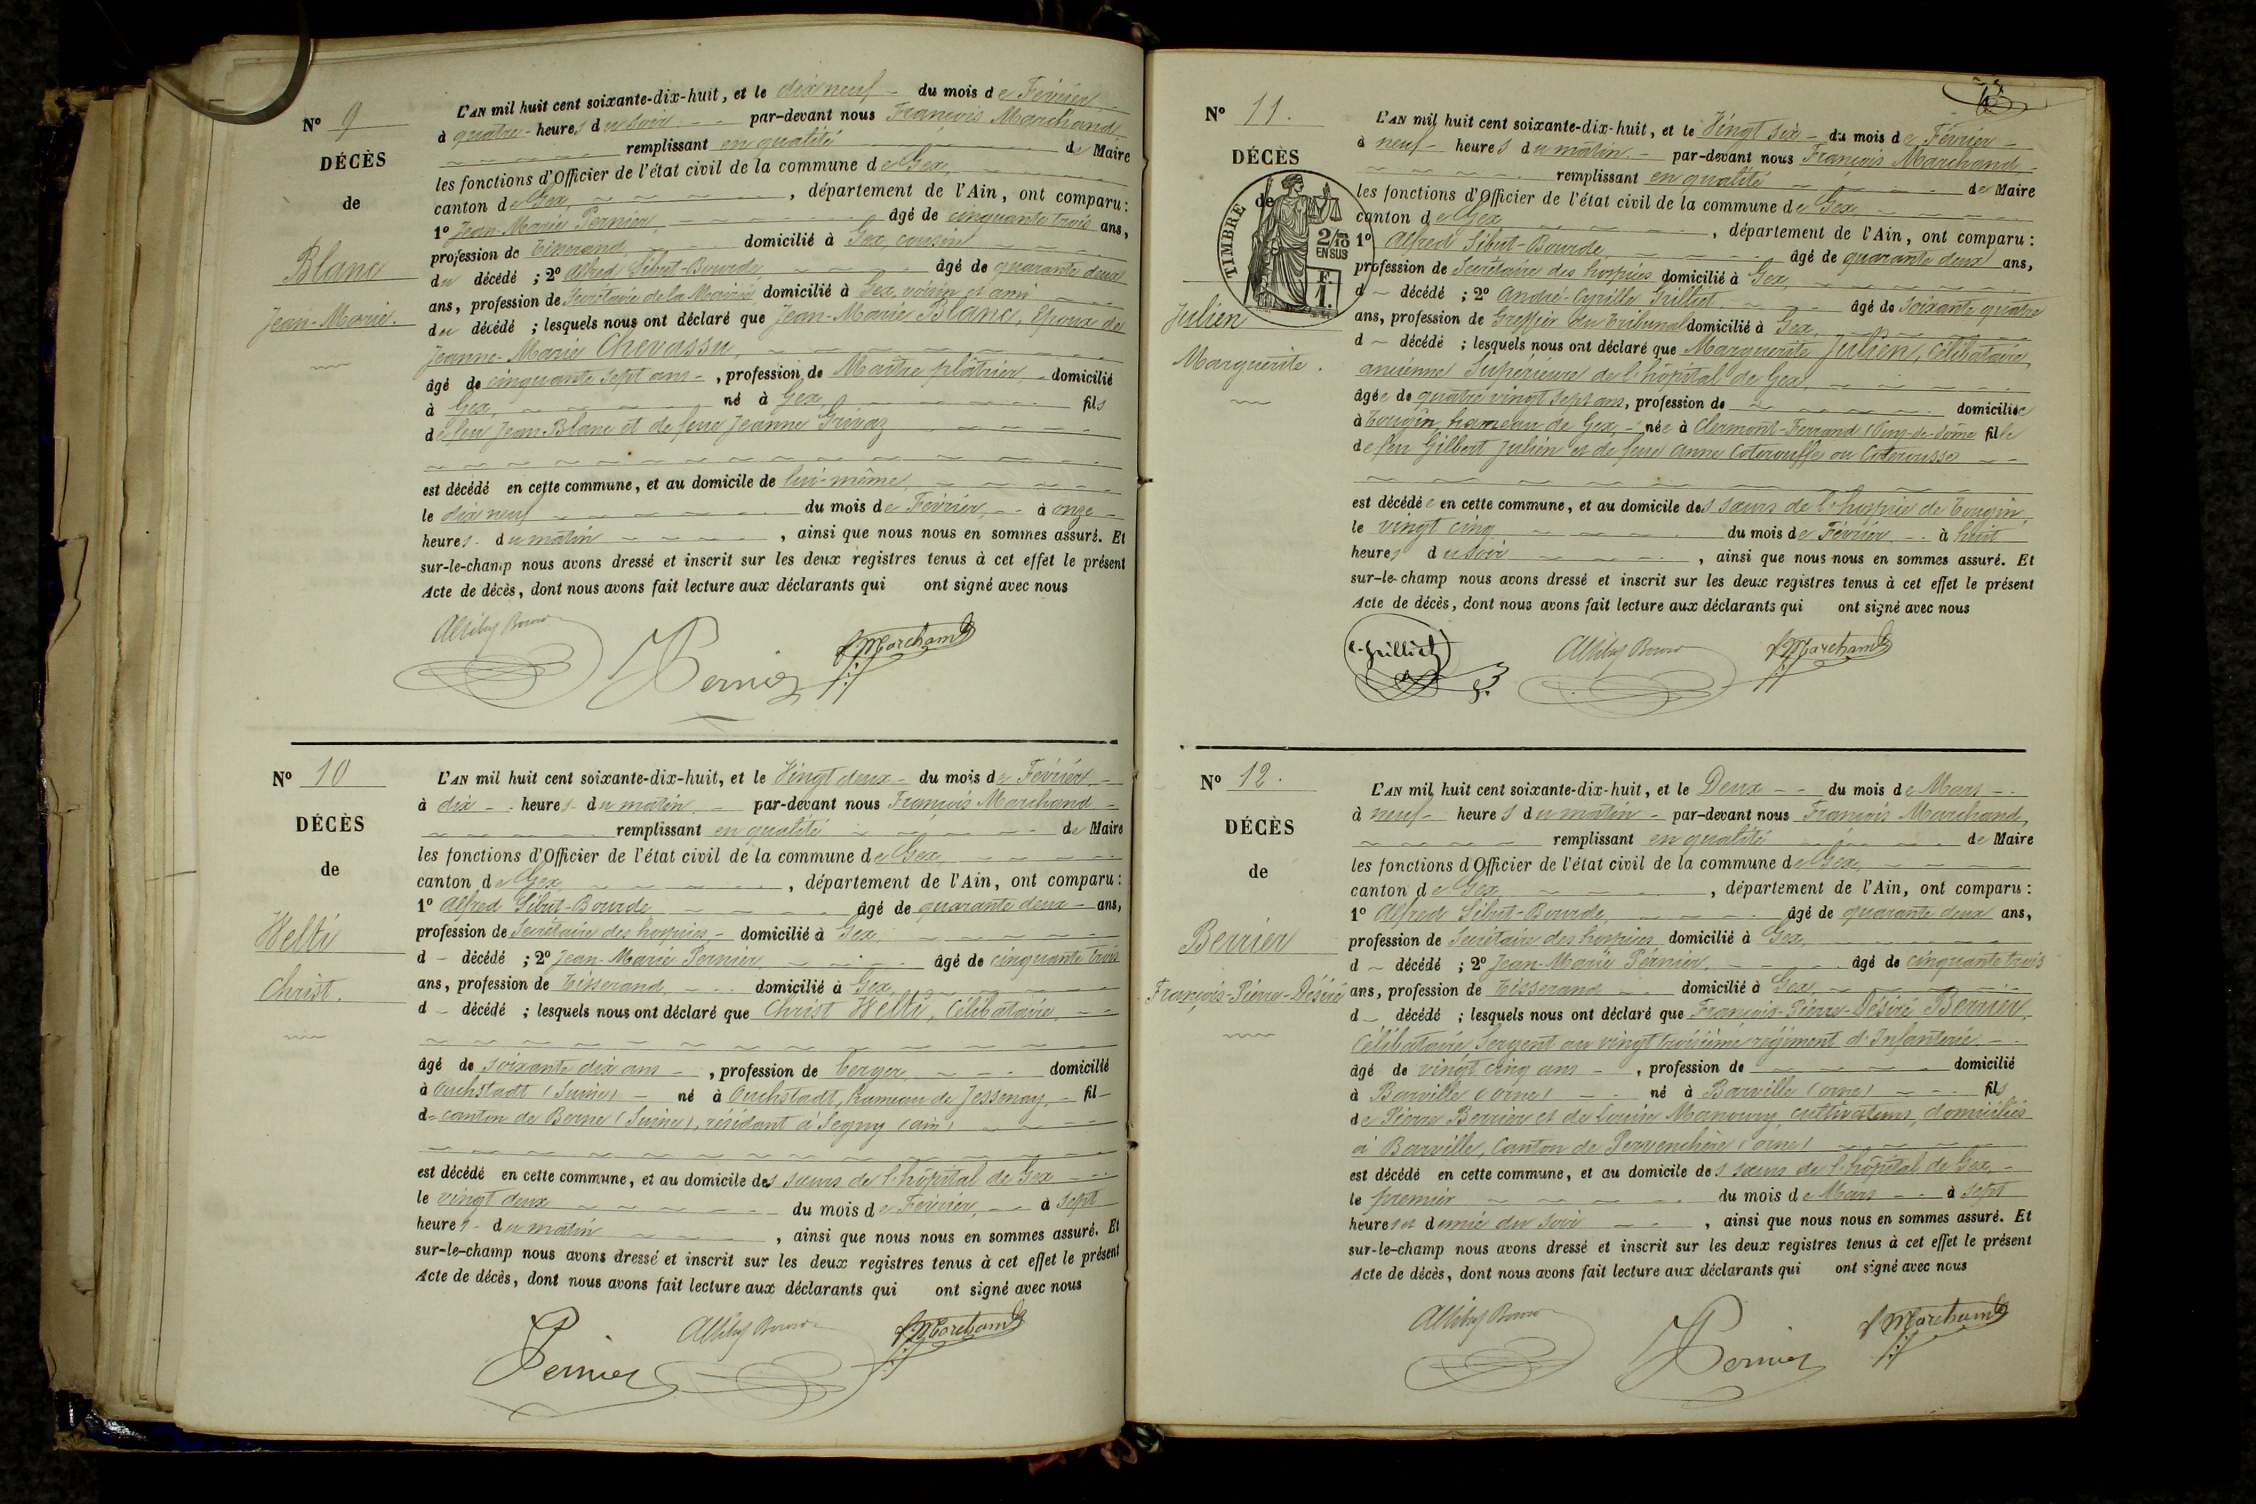 Nº 9
DÉCÈS
de
Blanc
Jean-Marie.
L'AN mil huit cent soixante-dix-huit, et le dix neuf du mois de Février
à quatre heures du soir par-devant nous François Marchand
remplissant en qualité de Maire
les fonctions d'Officier de l'état civil de la commune de Gex,
canton de Gex, département de l'Ain, ont comparu :
1º Jean-Marie Pernier, âgé de cinquante trois ans,
profession de Tisserand domicilié à Gex, cousin
du décédé ; 2º Alfred Sibut-Bourde, âgé de quarante deux
ans, profession de Secrétaire de la Mairie domicilié à Gex, voisin et ami
du décédé ; lesquels nous ont déclaré que Jean-Marie Blanc, Epoux de
Jeanne-Marie Chevassu,
âgé de cinquante sept ans, profession de Maître plâtrier, domicilié
à Gex, né à Gex, fils
de feu Jean Blanc et de feue Jeanne Grivaz
est décédé en cette commune, et au domicile de lui-même,
le dix neuf du mois de Février, à onze
heures du matin, ainsi que nous nous en sommes assuré. Et
sur-le-champ nous avons dressé et inscrit sur les deux registres tenus à cet effet le présent
Acte de décès, dont nous avons fait lecture aux déclarants qui ont signé avec nous
Pernier
f Marchand
Nº 10
DÉCÈS
de
Helti
Christ.
L'AN mil huit cent soixante-dix-huit, et le Vingt deux du mois de Février
à dix heures du matin par-devant nous François Marchand
remplissant en qualité de Maire
les fonctions d'Officier de l'état civil de la commune de Gex,
canton de Gex, département de l'Ain, ont comparu :
1º Alfred Sibut-Bourde âgé de quarante deux ans,
profession de Secrétaire des hospices domicilié à Gex
d décédé ; 2º Jean-Marie Pernier âgé de cinquante trois
ans, profession de Tisserand, domicilié à Gex,
d décédé ; lesquels nous ont déclaré que Christ Helti, Célibataire,
âgé de soixante dix ans, profession de berger domicilié
à Ouchstadt (Suisse) né à Ouchstadt, hameau de Jessenay, fil
d canton de Berne (Suisse), résidant à Segny (ain)
est décédé en cette commune, et au domicile des sœurs de l'hôpital de Gex
le vingt deux du mois de Février, à sept
heures du matin, ainsi que nous nous en sommes assuré. Et
sur-le-champ nous avons dressé et inscrit sur les deux registres tenus à cet effet le présent
Acte de décès, dont nous avons fait lecture aux déclarants qui ont signé avec nous
Pernier
f Marchand
Nº 11.
DÉCÈS
de
TIMBRE
2/10
EN SUS
F.
1.
Julien
Marguerite.
L'AN mil huit cent soixante-dix-huit, et le Vingt six du mois de Février
à neuf heures du matin par-devant nous François Marchand,
remplissant en qualité de Maire
les fonctions d'Officier de l'état civil de la commune de Gex
canton de Gex, département de l'Ain, ont comparu :
1º Alfred Sibut-Bourde âgé de quarante deux ans,
profession de Secrétaire des hospices domicilié à Gex,
d décédé ; 2º André-Cyrille Grilliet âgé de Soixante quatre
ans, profession de Greffier du Tribunal domicilié à Gex,
d décédé ; lesquels nous ont déclaré que Marguerite Julien, Célibataire,
ancienne Supérieure de l'hôpital de Gex,
âgée de quatre vingt sept ans, profession de domiciliée
à Tougin, hameau de Gex, née à Clermont-Ferrand (Puy-de-Dôme fille
de feu Gilbert Julien et de feue Anne Coterouffe ou Coterousse
est décédée en cette commune, et au domicile des sœurs de l'hospice de Tougin,
le vingt cinq du mois de Février à huit
heures du soir, ainsi que nous nous en sommes assuré. Et
sur-le-champ nous avons dressé et inscrit sur les deux registres tenus à cet effet le présent
Acte de décès, dont nous avons fait lecture aux déclarants qui ont signé avec nous
c. Grilliet
f Marchand
Nº 12.
DÉCÈS
de
Berrier
François-Pierre-Désiré
L'AN mil huit cent soixante-dix-huit, et le Deux du mois de Mars
à neuf heures du matin par-devant nous François Marchand,
remplissant en qualité de Maire
les fonctions d'Officier de l'état civil de la commune de Gex,
canton de Gex, département de l'Ain, ont comparu :
1º Alfred Sibut-Bourde, âgé de quarante deux ans,
profession de Secrétaire des hospices domicilié à Gex,
d décédé ; 2º Jean-Marie Pernier, âgé de cinquante trois
ans, profession de Tisserand domicilié à Gex,
d décédé ; lesquels nous ont déclaré que François-Pierre-Désiré Berrier,
Célibataire Sergent au vingt troisième régiment d'Infanterie,
âgé de vingt cinq ans, profession de domicilié
à Barville (orne) né à Barville (orne) fils
de Pierre Berrier et de Louise Manoury, cultivateurs, domiciliés
à Barville, Canton de Pervenchère (orne)
est décédé en cette commune, et au domicile des sœurs de l'hôpital de Gex,
le premier du mois de Mars à sept
heures et demie du soir, ainsi que nous nous en sommes assuré. Et
sur-le-champ nous avons dressé et inscrit sur les deux registres tenus à cet effet le présent
Acte de décès, dont nous avons fait lecture aux déclarants qui ont signé avec nous
Pernier
f Marchand